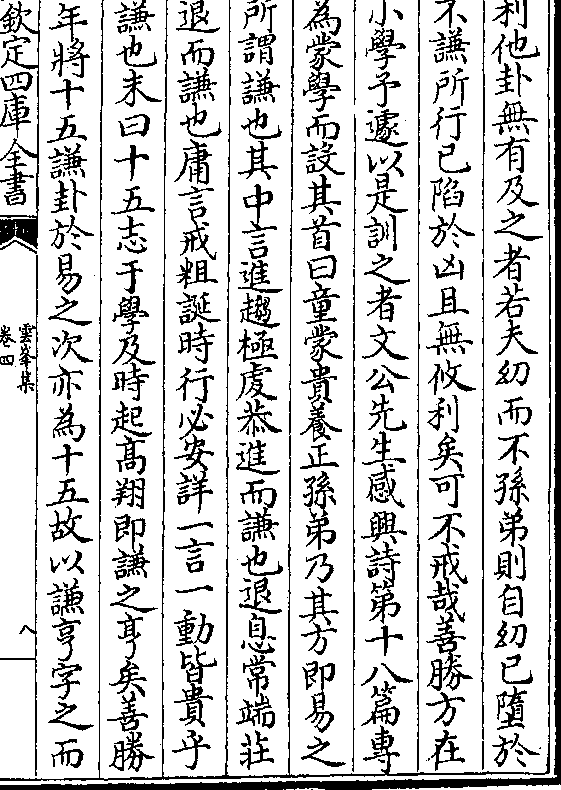 利他卦無有及之者若夫幼而不孫弟則自幼已墮於
不謙所行已陷於凶且無攸利矣可不戒哉善勝方在
小學予遽以是訓之者文公先生感興詩第十八篇專
為蒙學而設其首曰童蒙貴養正孫弟乃其方即易之
所謂謙也其中言進趨極虔恭進而謙也退息常端莊
退而謙也庸言戒粗誕時行必安詳一言一動皆貴乎
謙也末曰十五志于學及時起高翔即謙之亨矣善勝
年將十五謙卦於易之次亦為十五故以謙亨字之而
欽定四庫全書
雲峯集
卷四
八